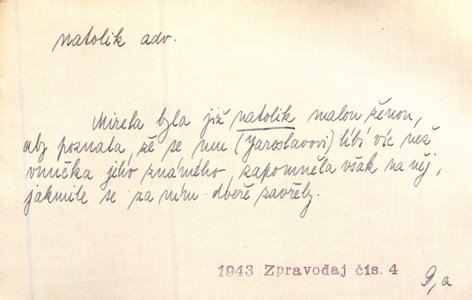 natolik adv.
Mirela byla již natolik malou ženou,
aby poznala, že se mu (Jaroslavovi) líbí víc než
vnučka jeho známého, zapomněla však na něj,
jakmile se za ním dveře zavřely.
1943 Zpravodaj čís. 4
9,a